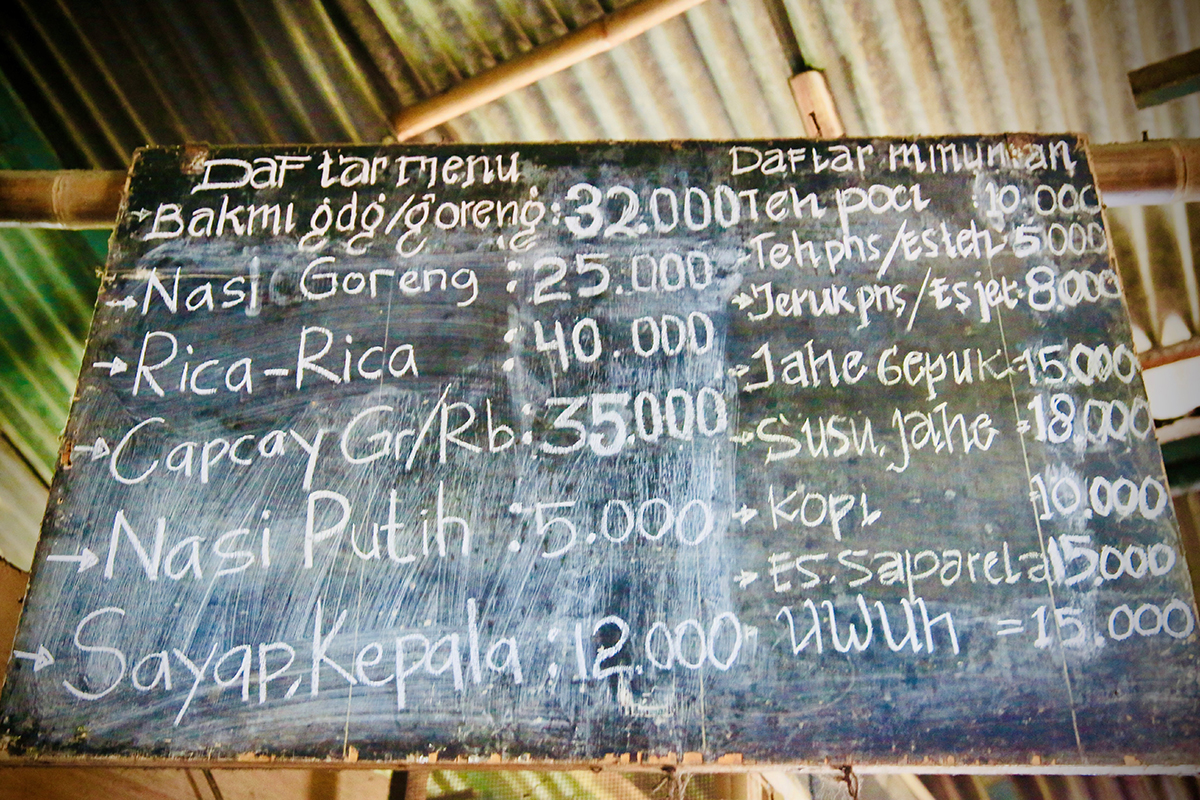 Daftar menu
Bakmi gdg/goreng : 32.000
→ Nasi Goreng : 25.000
→ Rica-Rica : 40.000
→ Capcay Gr/Rb : 35.000
→ Nasi Putih : 5.000
→ Sayap, Kepala : 12.000
Daftar minuman
Teh poci : 10.000
Teh pns/Es teh 5000
→ Jeruk pns/Es jer. 8.000
→ Jahe Gepuk = 15.000
→ Susu. Jahe = 18.000
→ Kopi = 10.000
→ Es. Saparela 15.000
UWUh = 15.000